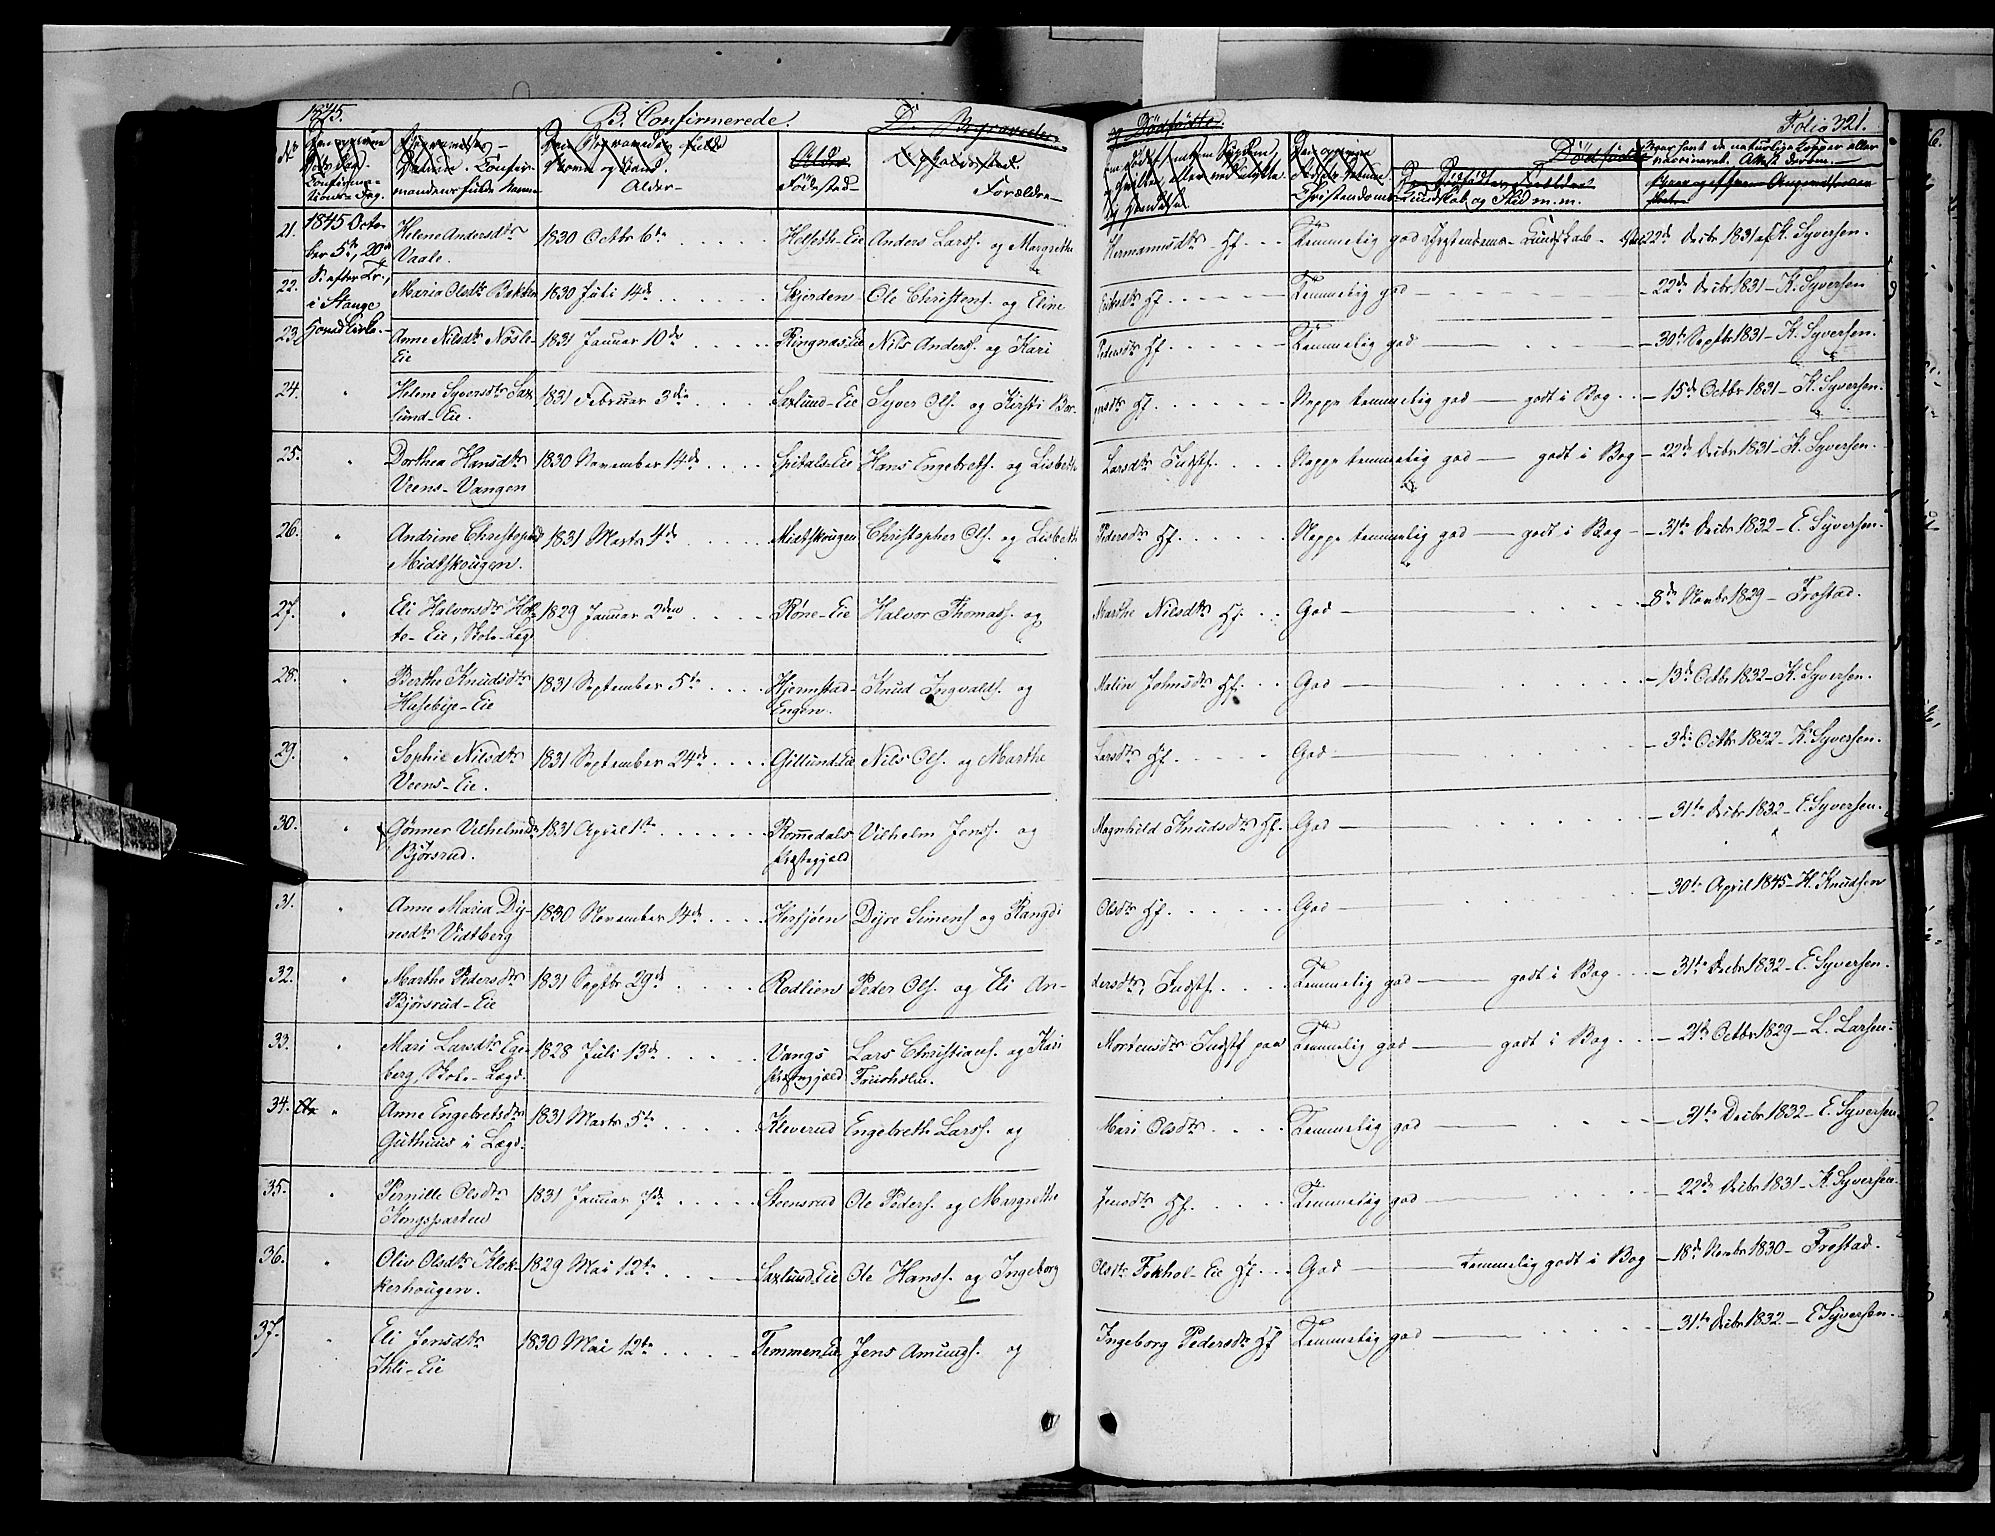 1845.
B. Confirmerede.
D. Begravede
og Dödfödte.
Folio 321.
No
Confirma-
tions-Dag.
Confir-
mandens fulde Navn
Alder-
Födested-
Forældre-
Christendoms-Kundskab og Flid m.m.
Naar havt de naturlige Kopper eller vaccineret. Attest derom.
21. 1845 Octo-
ber 5te, 20de
S. efter Tr.,
i Stange
Hoved Kirke.-
Helene Andersdtr
Vaale. 1830 Octbr 6te Helseth-Eie Anders Larss. og Margrethe Hermansdtr Hf. Temmelig god Christendoms-Kundskab. Vac. 22de Decbr 1831 af K. Syversen.
22. Maria Olsdtr Bekken 1830 Juli 14de Gjerdens Ole Christens. og Eline Eriksdtr Hf. Temmelig god - 22de Decbr 1831 - K. Syversen
23. Anne Nilsdtr Nøsle-
Eie 1831 Januar 10de Ringnæs Eie Nils Anders. og Kari Pedersdtr Hf. Temmelig god - 30te Septbr 1831 - K. Syversen.
24. " Helene Syversdtr Sax-
lund-Eie. 1831 Februar 3die Saxlund-Eie Syver Ols. og Kirsti Bør- jesdtr Hf. Neppe temmelig god - godt i Bog - 15de Octbr 1831 - K. Syversen.
25. " Dorthea Hansdtr
Veens-Vangen 1830 November 14de Spitals Eie Hans Engebrets. og Lisbeth Larsdtr Indstf. Neppe temmelig god - godt i Bog - 22de Decbr 1831 - K. Syversen.
26. " Andrine Christophd
Midtskougen. 1831 Marts 4de Midtskougen Christopher Ols. og Lisbeth Pedersdtr Hf. Neppe temmelig god - godt i Bog - 31te Decbr 1832 - E. Syversen.
27. " Eli Halvorsdtr Hol-
te-Eie, Skole-Lægd 1829 Januar 2den Røne-Eie Halvor Thomass. og Marthe Nilsdtr Hf. God - 8de Novbr 1829 - Frostad.
28. " Berthe Knudsdtr
Husebye-Eie 1831 September 5te Hjermstad-
Engen. Knud Ingvalds. og Malin Johnsdtr Hf. God - 13de Octbr 1832 - K. Syversen.
29. " Sophie Nilsdtr
Veens-Eie. 1831 September 24de Gillund Eie Nils Ols. og Marthe Larsdtr Hf. God - 3die Octbr 1832 - K. Syversen.
30. " Gønner Vilhelmsd
Bjørsrud. 1831 April 1ste Romedals
Præstegjæld Vilhelm Jenss. og Magnhild Knudsdtr Hf. God - 31te Decbr 1832 - E. Syversen.
31. " Anne Maria Dy-
resdtr Vidtberg 1830 November 14de Hersjöen Dyre Simens. og Rangdi Olsdtr Hf. God - 30te April 1845 - H. Knudsen
32. " Marthe Pedersdtr
Bjørsrud-Eie 1831 Septbr 29de Rodlien Peder Ols. og Eli An- dersdtr, Indstf. Temmelig god - godt i Bog - 31te Decbr 1832 - E. Syversen.
33. " Mari Larsdtr Ege-
berg, Skole-Lægd. 1828 Juli 13de Vangs
Præstegjæld Lars Christians. og Kari
Friisholm. Mortensdtr Indstf paa Temmelig god - godt i Bog - 21de Octbr 1829 - L. Larsen.
34. " Anne Engebretsdtr
Guthuus i Lægd. 1831 Marts 5te Kleverud Engebreth Larss. og Mari Olsdtr Temmelig god - 31te Decbr 1832 - E. Syversen
35. " Pernille Olsdtr
Kongsparten 1831 Januar 7de Steensrud Ole Peders. og Margrethe Jensdtr Hf. Temmelig god - 22de Decbr 1831 - K. Syversen.
36. " Oliv Olsdtr Klok-
kerhougen. 1829 Mai 12te Saxlund Eie Ole Hanss. og Ingeborg Olsdtr Fokhol-Eie Hf. God - temmelig godt i Bog - 18de Novbr 1830 - Frostad.
37. " Eli Jensdtr
Ihle-Eie 1830 Mai 12te Tommen Eie Jens Amunds. og Ingeborg Pedersdtr Hf Temmelig god - 31te Decbr 1832 - E Syversen.